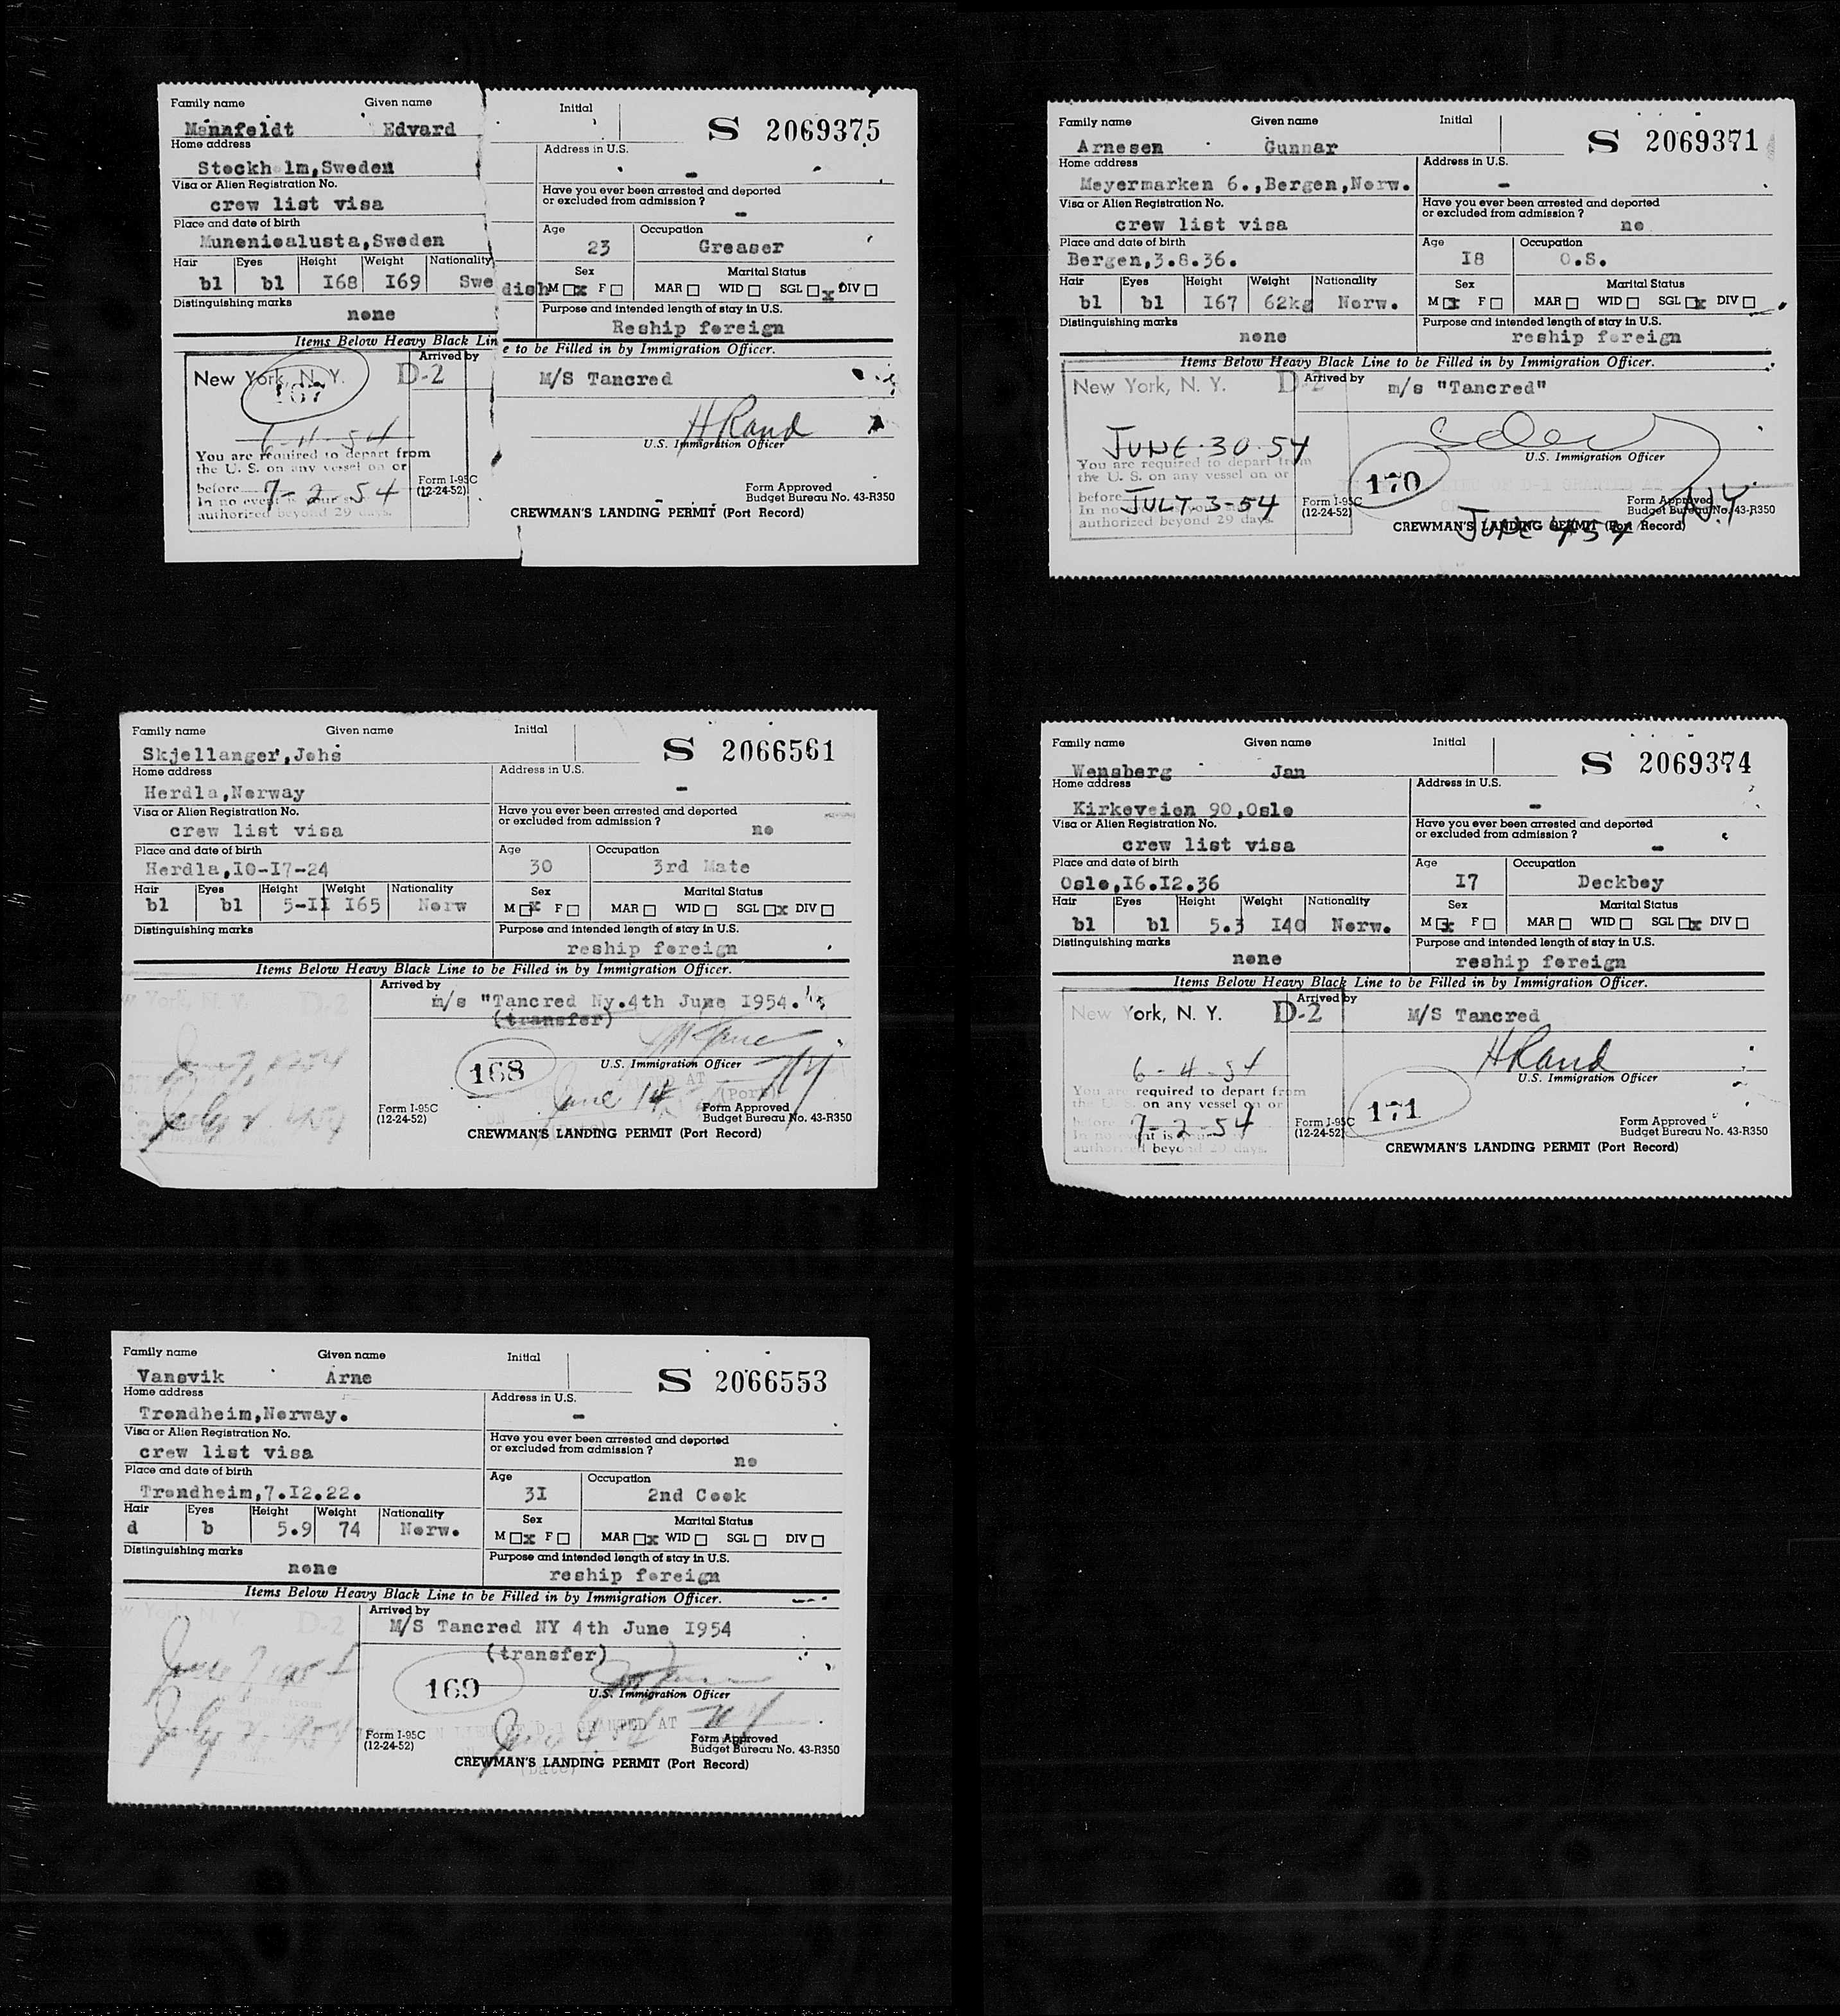 Family name Given name Initial
S 2069375
Mannfeldt Edvard
Home address Address in U.S.
Stockholm,Sweden -
Visa or Alien Registration No. Have you ever been arrested and deported
or excluded from admission ?
crew list visa -
Place and date of birth Age Occupation
Munonioalusta,Sweden 23 Greaser
Hair Eyes Height Weight Nationality Sex Marital Status
bl bl I68 I69 Swedish M x F MAR WID SGL x DIV
Distinguishing marks Purpose and intended length of stay in U.S.
none Reship foreign
Items Below Heavy Black Line to be Filled in by Immigration Officer.
Arrived by
New York, N. Y. D-2 M/S Tancred
167
H Rand
6-4-54 U.S. Immigration Officer
You are required to depart from
the U. S. on any vessel on or
before 7-2-54
In no event
authorized beyond 29 days.
Form I-95C
(12-24-52)
Form Approved
Budget Bureau No. 43-R350
CREWMAN'S LANDING PERMIT (Port Record)
Family name Given name Initial
S 2069371
Arnesen Gunnar
Home address Address in U.S.
Meyermarken 6.,Bergen,Norw. -
Visa or Alien Registration No. Have you ever been arrested and deported
or excluded from admission ?
crew list visa no
Place and date of birth Age Occupation
Bergen,3.8.36. I8 O.S.
Hair Eyes Height Weight Nationality Sex Marital Status
bl bl I67 62kg Norw. M x F MAR WID SGL x DIV
Distinguishing marks Purpose and intended length of stay in U.S.
none reship foreign
Items Below Heavy Black Line to be Filled in by Immigration Officer.
New York, N. Y. D-2 Arrived by m/s "Tancred"
JUNE-30-54
U.S. Immigration Officer
You are required to depart from
the U. S. on any vessel on or
before JULY-3-54
In no
authorized beyond 29 days.
170
Form I-95C
(12-24-52)
Form Approved
Budget Bureau No. 43-R350
N.Y
CREWMAN'S LANDING PERMIT (Port Record)
JUNE 4 54
Family name Given name Initial
S 2066561
Skjellanger,Johs
Home address Address in U.S.
Herdla,Norway -
Visa or Alien Registration No. Have you ever been arrested and deported
or excluded from admission ?
crew list visa no
Place and date of birth Age Occupation
Herdla,I0-I7-24 30 3rd Mate
Hair Eyes Height Weight Nationality Sex Marital Status
bl bl 5-II I65 Norw M x F MAR WID SGL x DIV
Distinguishing marks Purpose and intended length of stay in U.S.
reship foreign
Items Below Heavy Black Line to be Filled in by Immigration Officer.
Arrived by
m/s "Tancred Ny.4th June I954.
(transfer)
D-2
168
U.S. Immigration Officer
June 14
NY
Form I-95C
(12-24-52)
Form Approved
Budget Bureau No. 43-R350
CREWMAN'S LANDING PERMIT (Port Record)
Family name Given name Initial
S 2069374
Wensberg Jan
Home address Address in U.S.
Kirkeveien 90,Oslo -
Visa or Alien Registration No. Have you ever been arrested and deported
or excluded from admission ?
crew list visa -
Place and date of birth Age Occupation
Oslo,I6.I2.36 I7 Deckboy
Hair Eyes Height Weight Nationality Sex Marital Status
bl bl 5.3 I40 Norw. M x F MAR WID SGL x DIV
Distinguishing marks Purpose and intended length of stay in U.S.
none reship foreign
Items Below Heavy Black Line to be Filled in by Immigration Officer.
Arrived by
New York, N. Y. D-2 M/S Tancred
H Rand
6-4-54 U.S. Immigration Officer
You are required to depart from
the U.S. on any vessel on or
before 7-2-54
authorized beyond 29 days.
171
Form I-95C
(12-24-52)
Form Approved
Budget Bureau No. 43-R350
CREWMAN'S LANDING PERMIT (Port Record)
Family name Given name Initial
S 2066553
Vansvik Arne
Home address Address in U.S.
Trondheim,Norway. -
Visa or Alien Registration No. Have you ever been arrested and deported
or excluded from admission ?
crew list visa no
Place and date of birth Age Occupation
Trondheim,7.I2.22. 3I 2nd Cook
Hair Eyes Height Weight Nationality Sex Marital Status
d b 5.9 74 Norw. M x F MAR x WID SGL DIV
Distinguishing marks Purpose and intended length of stay in U.S.
none reship foreign
Items Below Heavy Black Line to be Filled in by Immigration Officer.
Arrived by
M/S Tancred NY 4th June I954
(transfer)
D-2
169
U.S. Immigration Officer
IN LIEU OF D-1 GRANTED AT NY
Form I-95C
(12-24-52)
Form Approved
Budget Bureau No. 43-R350
CREWMAN'S LANDING PERMIT (Port Record)
(Date)